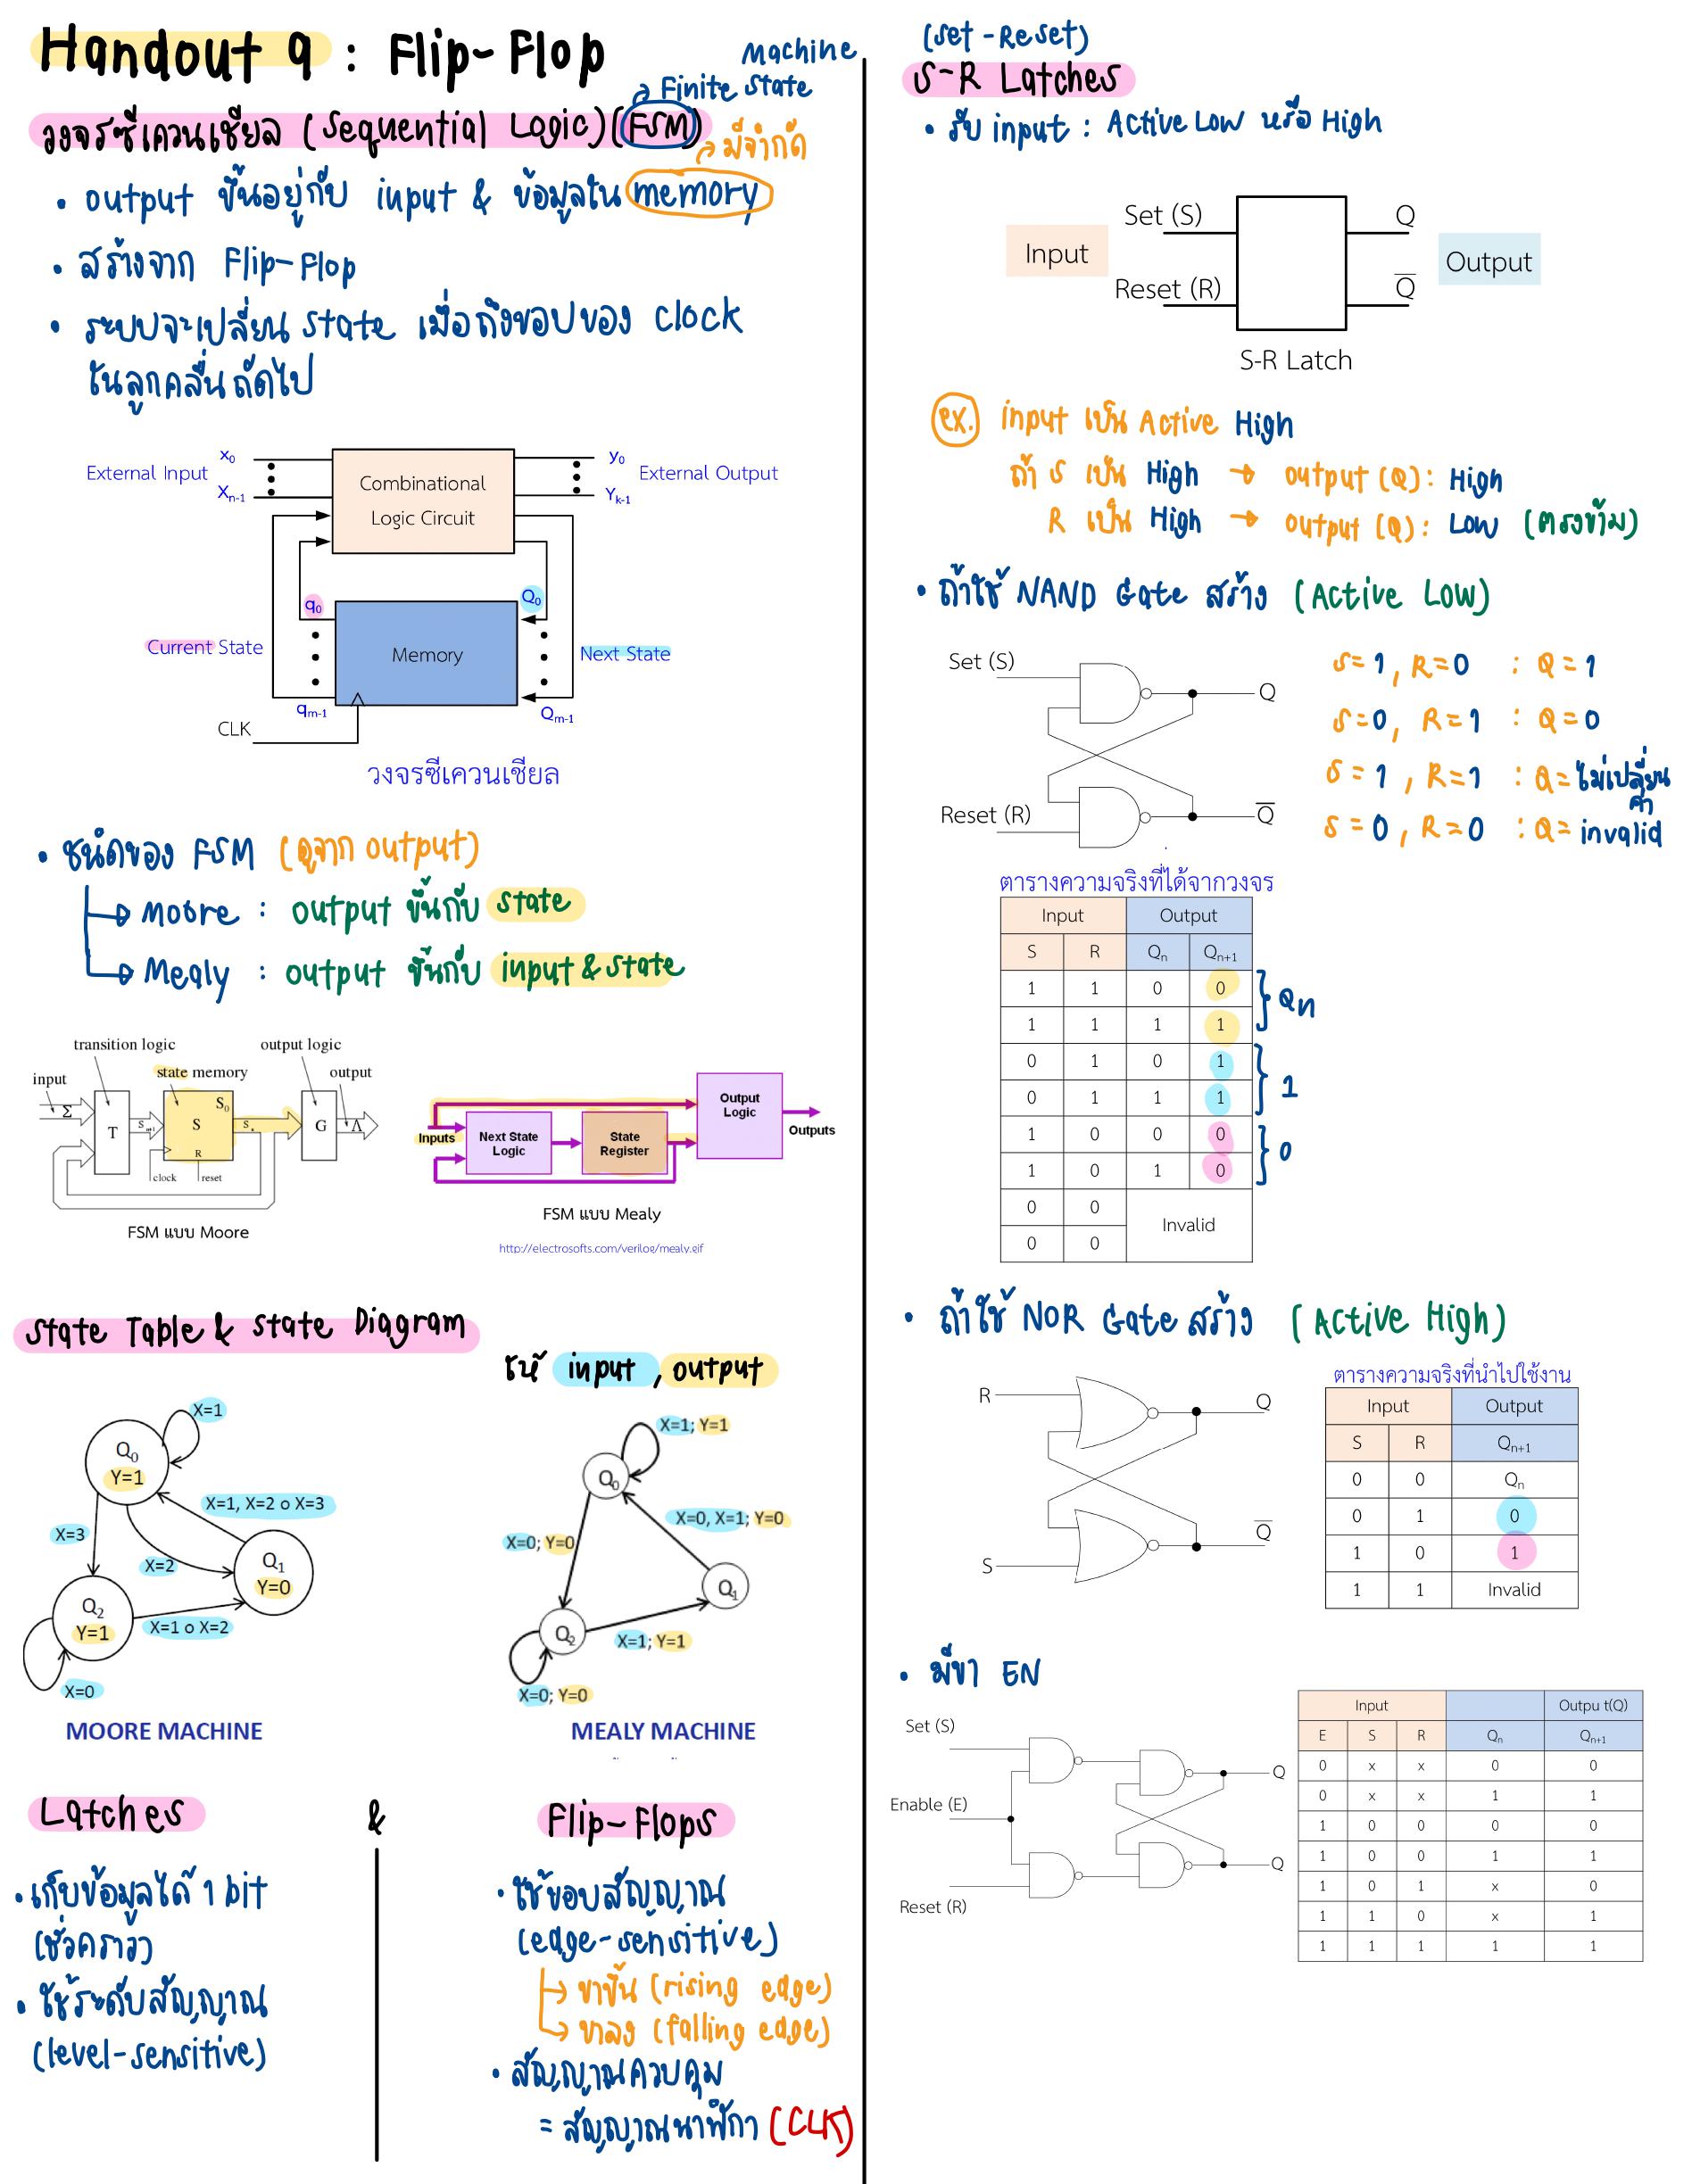 Handout 9 : Flip-Flop
วงจรซีเควนเชียล (Sequential Logic) (FSM)
Finite State Machine
มีจำกัด
• output ขึ้นอยู่กับ input & ข้อมูลใน memory
• สร้างจาก Flip-Flop
• ระบบจะเปลี่ยน state เมื่อถึงขอบของ clock
ในลูกคลื่นถัดไป
External Input
x0
Xn-1
Combinational
Logic Circuit
y0
Yk-1
External Output
q0
Q0
Current State
Memory
Next State
qm-1
Qm-1
CLK
วงจรซีเควนเชียล
• ชนิดของ FSM (ดูจาก output)
Moore : output ขึ้นกับ state
Mealy : output ขึ้นกับ input & state
transition logic
output logic
input
state memory
output
Σ
T
S n+1
S
S0
R
S n
G
Λ
clock
reset
FSM แบบ Moore
Inputs
Next State
Logic
State
Register
Output
Logic
Outputs
FSM แบบ Mealy
http://electrosofts.com/verilog/mealy.gif
State Table & State Diagram
ให้ input, output
X=1
Q0
Y=1
X=1, X=2 o X=3
X=3
X=2
Q1
Y=0
Q2
Y=1
X=1 o X=2
X=0
MOORE MACHINE
X=1; Y=1
Q0
X=0, X=1; Y=0
X=0; Y=0
Q1
Q2
X=1; Y=1
X=0; Y=0
MEALY MACHINE
Latches & Flip-Flops
• เก็บข้อมูลได้ 1 bit
(ชั่วคราว)
• ใช้ระดับสัญญาณ
(level-sensitive)
• ใช้ขอบสัญญาณ
(edge-sensitive)
→ ขาขึ้น (rising edge)
→ ขาลง (falling edge)
• สัญญาณควบคุม
= สัญญาณนาฬิกา (CLK)
(Set-Reset)
S-R Latches
• รับ input : Active Low หรือ High
Input
Set (S)
Reset (R)
Q
Q̅
Output
S-R Latch
ex. input เป็น Active High
ถ้า S เป็น High → output (Q) : High
R เป็น High → output (Q) : Low (ตรงข้าม)
• ถ้าใช้ NAND Gate สร้าง (Active Low)
Set (S)
Q
Reset (R)
Q̅
S=1, R=0 : Q=1
S=0, R=1 : Q=0
S=1, R=1 : Q=ไม่เปลี่ยน
ค่า
S=0, R=0 : Q=invalid
ตารางความจริงที่ได้จากวงจร
Input Output
S R Qn Qn+1
1 1 0 0
1 1 1 1
Qn
0 1 0 1
0 1 1 1
1
1 0 0 0
1 0 1 0
0
0 0
Invalid
0 0
• ถ้าใช้ NOR Gate สร้าง (Active High)
R
Q
S
Q̅
ตารางความจริงที่นำไปใช้งาน
Input Output
S R Qn+1
0 0 Qn
0 1 0
1 0 1
1 1 Invalid
• มีขา EN
Set (S)
Enable (E)
Reset (R)
Q
Q
Input Outpu t(Q)
E S R Qn Qn+1
0 x x 0 0
0 x x 1 1
1 0 0 0 0
1 0 0 1 1
1 0 1 x 0
1 1 0 x 1
1 1 1 1 1